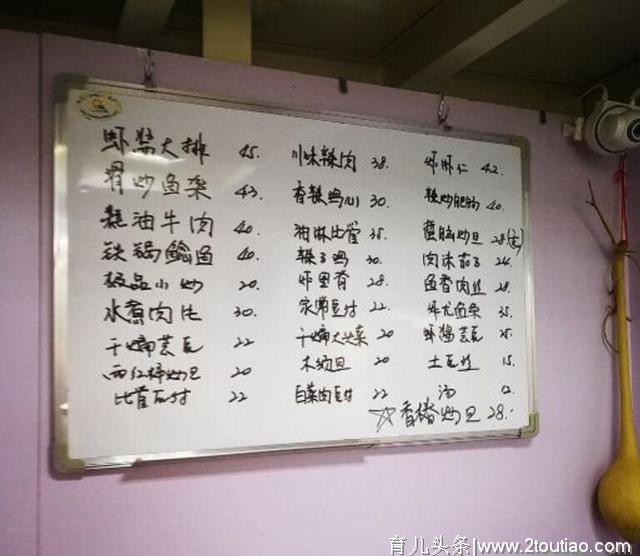 虾酱大排 45. 川味辣肉 38. 炸虾仁 42.
滑炒鱼 43. 香辣鸡心 30. 辣炒肥肠 40.
熬油牛肉 40. 油淋比管 35. 炒旦 28
铁锅鱼 40. 辣子鸡 30 肉沫茄子 24.
极品小炒 20. 炸里脊 28 鱼香肉丝 28.
水煮肉片 30. 家常豆付 22. 炸尤鱼 35.
干煸芸豆 22 干煸大头菜 20 虾酱芸豆 25.
西红柿炒旦 20 木须旦 20 土豆丝 15.
比管豆付 22 白菜肉豆付 22 汤 12.
☆香椿炒旦 28.
育儿头条|www.2toutiao.com